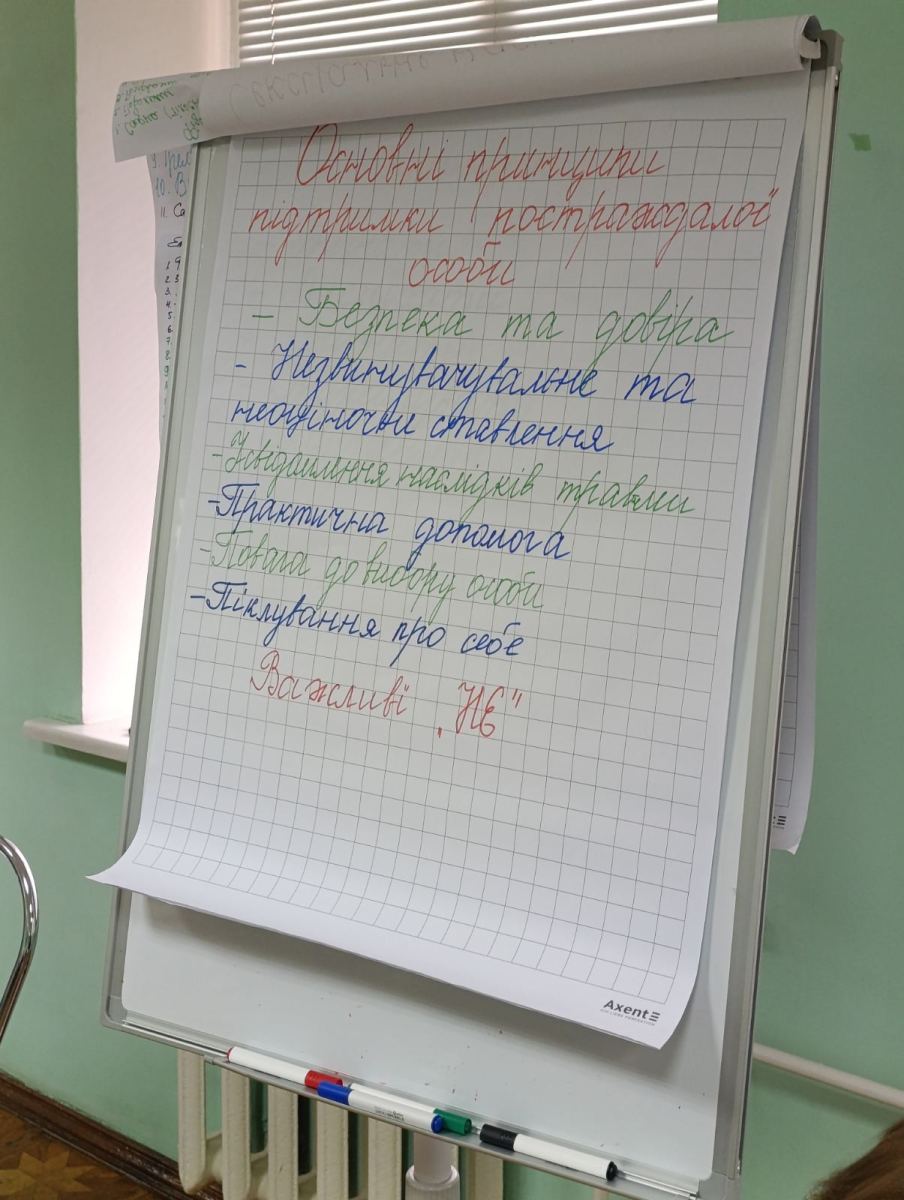 Основні принципи
підтримки постраждалої
особи
- Безпека та довіра
- Незвинувачувальне та
неоціночне ставлення
- Усвідомлення наслідків травми
- Практична допомога
- Повага до вибору особи
- Піклування про себе
Важливі „НЕ"
Axent
10. В
11. Са
1.
2. 3
3.
4.
5.
6.
7.
8.
9